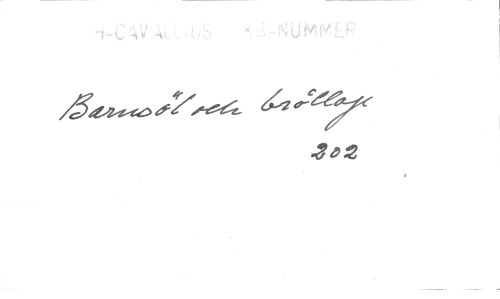 H-CAVALLIUS KB-NUMMER
Barnsöl och bröllop
202